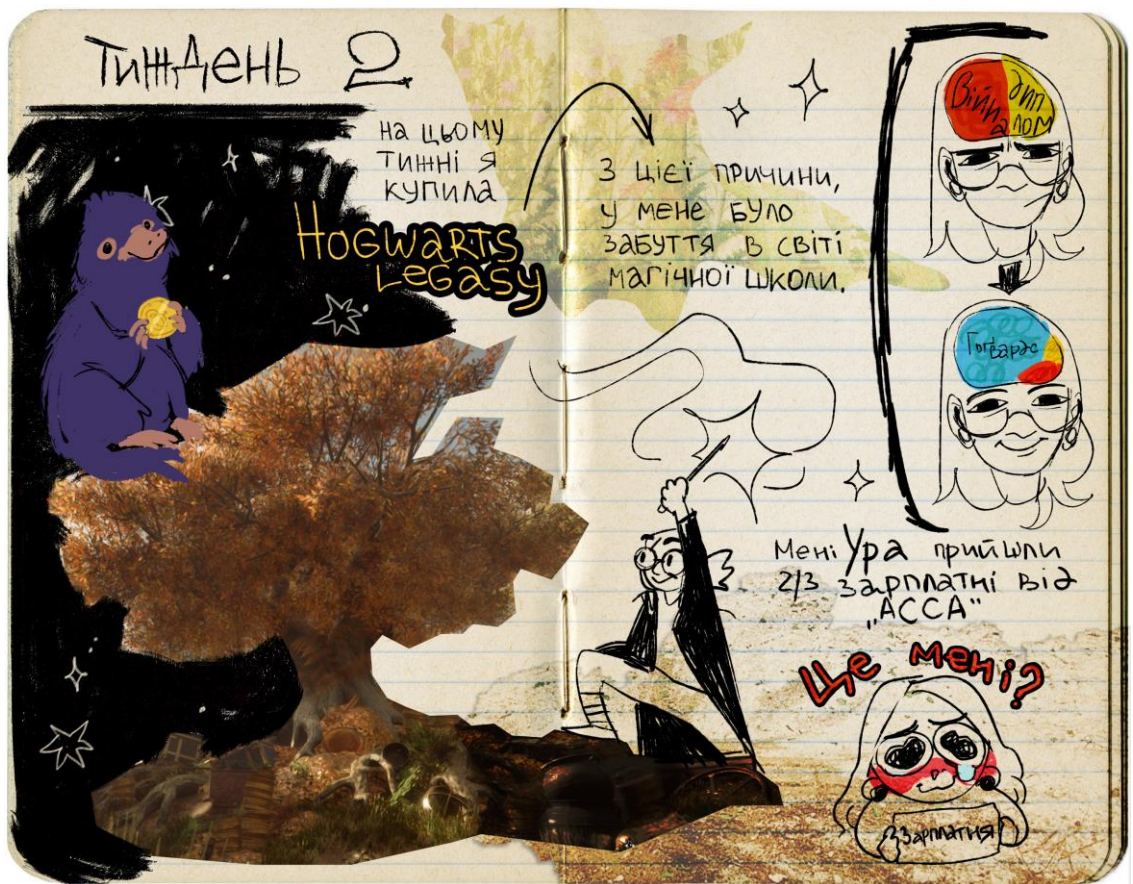 ТИЖДЕНЬ 2
НА ЦЬОМУ
ТИЖНІ Я
КУПИЛА
HOGWARTS
LEGASY
З ЦІЄЇ ПРИЧИНИ,
У МЕНЕ БУЛО
ЗАБУТТЯ В СВІТІ
МАГІЧНОЇ ШКОЛИ.
Війна
дип
лом
Гоґвартс
Мені Ура прийшли
2/3 зарплатні від
„АССА“
Це мені?
Зарплатня